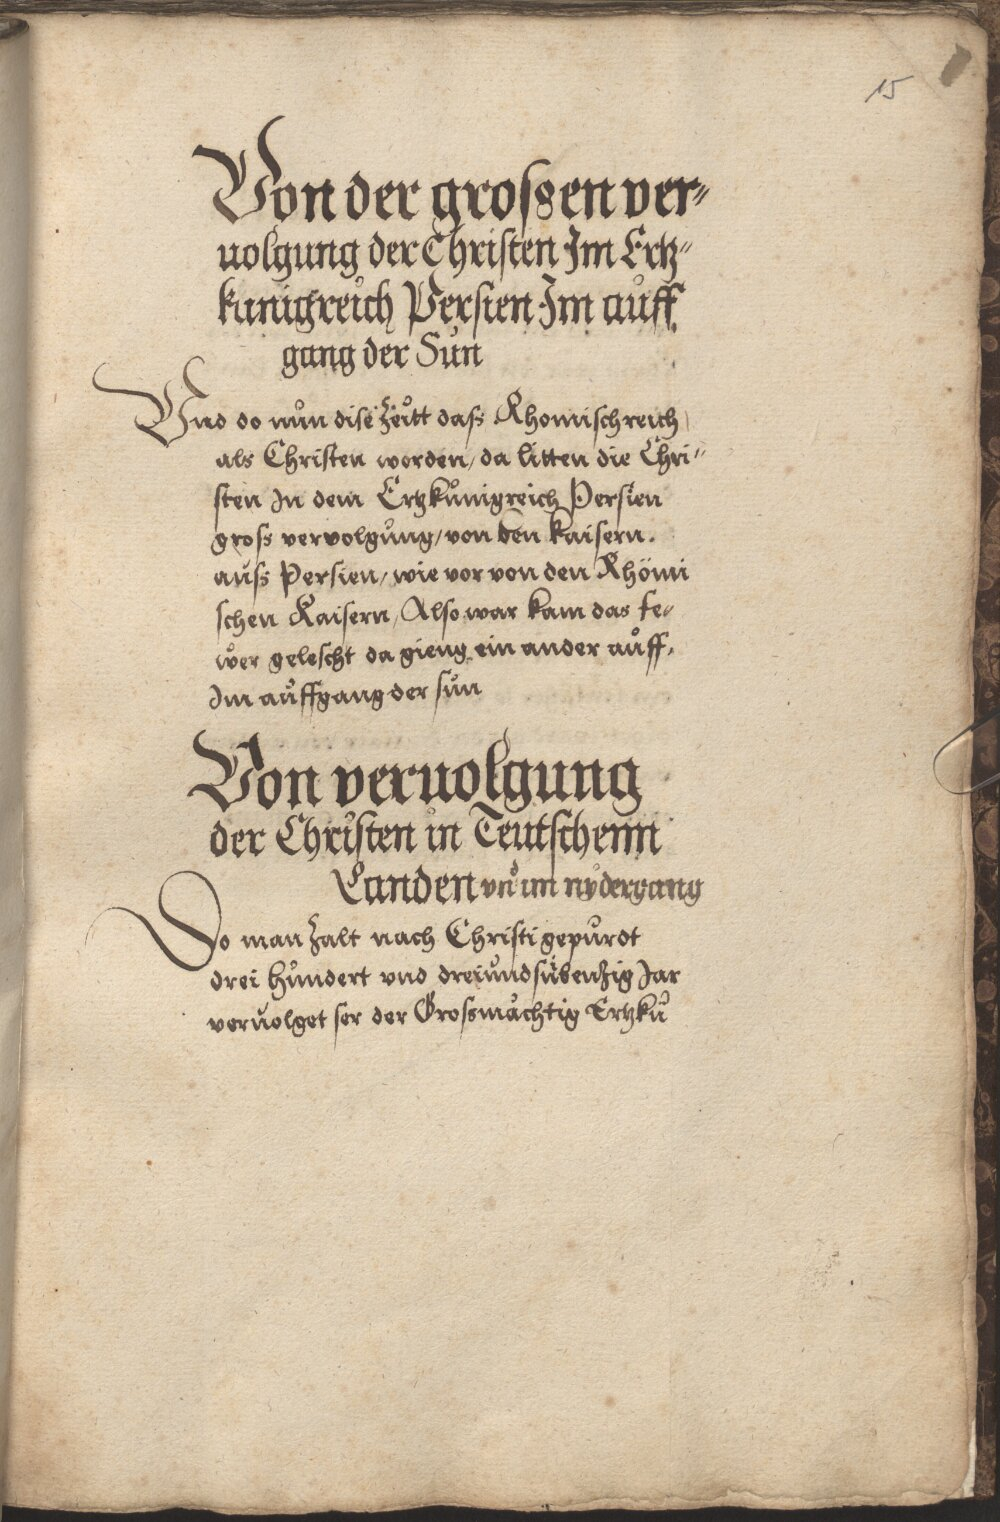 15
Von der grossen ver-
uolgung der Christen Im Ertz-
kunigreich Persien Im auff
gang der Sun
Vnd do nůn dise Zeitt dass Rhomischreich
als Christen worden, da litten die Chri-
sten In dem Ertzkůnigreich Persien
gross vervolgůng, von den kaisern.
auss Persien, wie vor von den Rhömi
schen Kaisern, Also war kam das fe-
wer gelescht da gieng ein ander aůff,
Im aůffgang der sůn
Von veruolgung
der Christen in Teutschenn
Landen vnd im nydergang
Do man Zalt nach Christi gepůrdt
drei hůndert vnd dreiůndsübenzig Jar
verůolget ser der Grossmächtig Ertzků